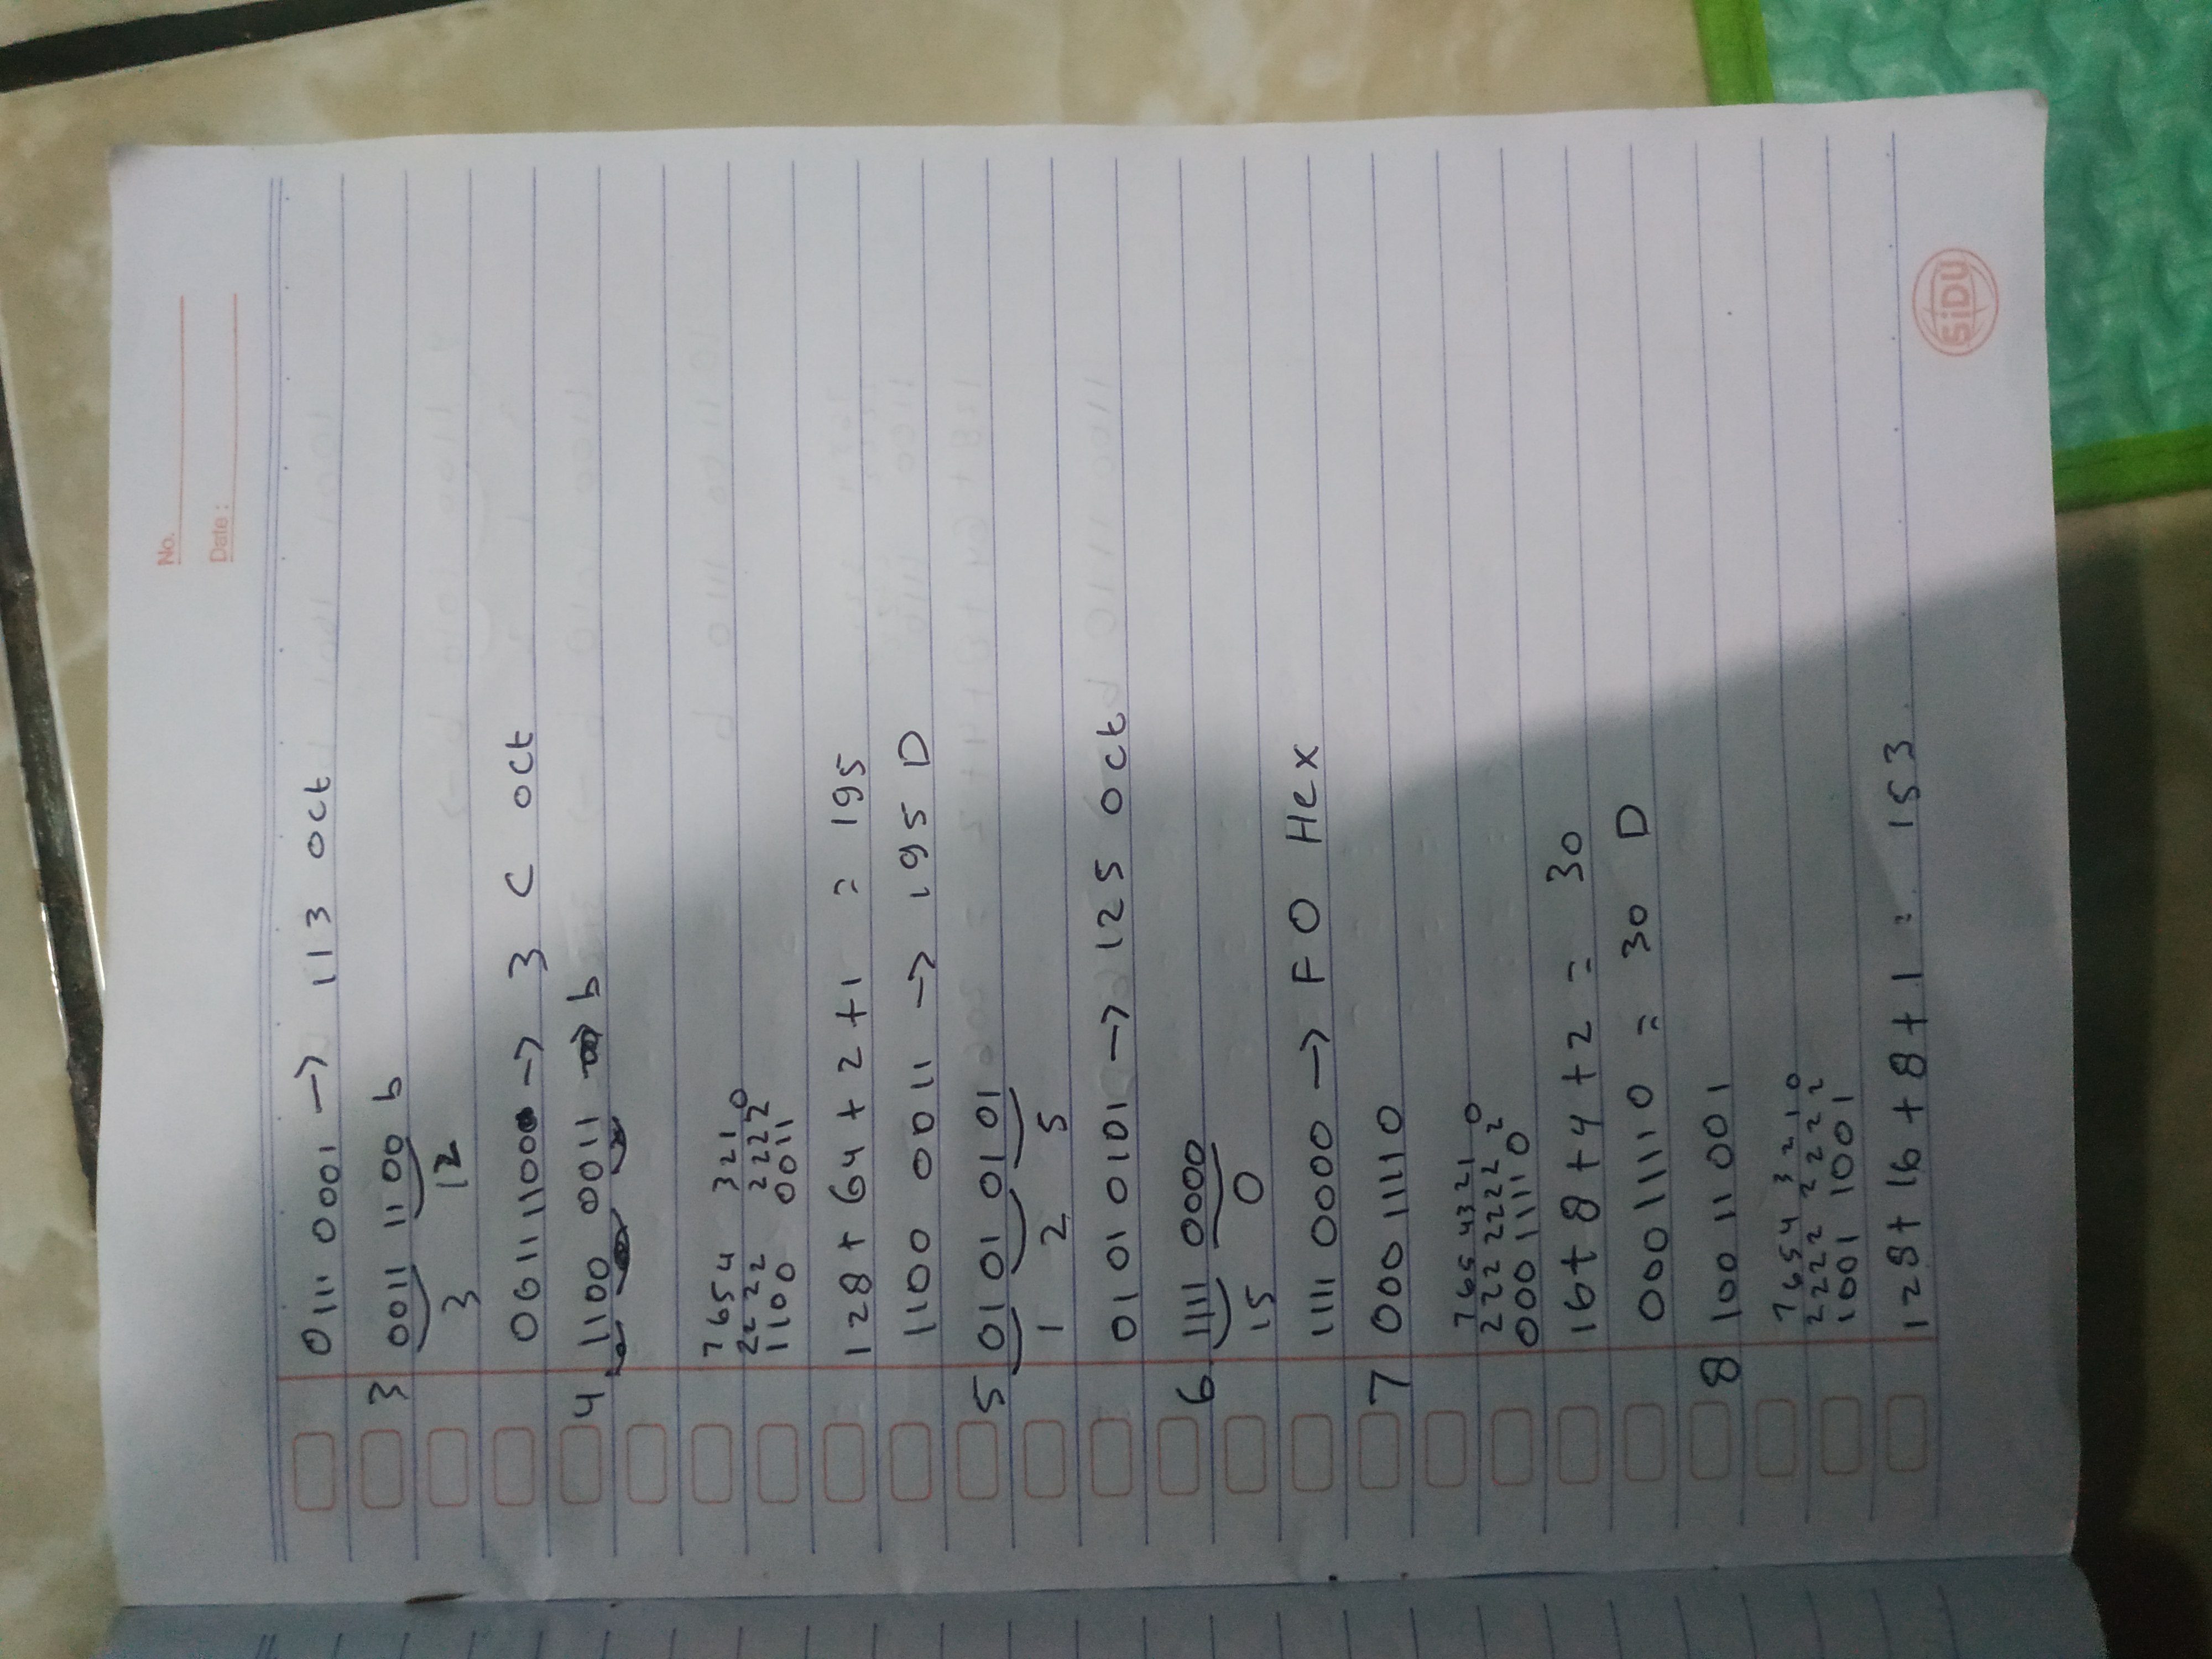 No.
Date :
0111 0001 -> 113 oct
3 0011 1100 b
3 12
00111100 -> 3 C oct
4. 1100 0011 b
7654 3210
2222 2222
1100 0011
128 + 64 + 2 + 1 = 195
1100 0011 -> 195 D
5 01 01 01 01
1 2 5
01 01 0101 -> 125 oct
6 1111 0000
15 0
1111 0000 -> F0 Hex
7 00011110
7654321 0
222 2222 2
00011110
16 + 8 + 4 + 2 = 30
00011110 = 30 D
8 100 11 001
7654 3210
2222 2222
1001 1001
128 + 16 + 8 + 1 = 153
SiDU